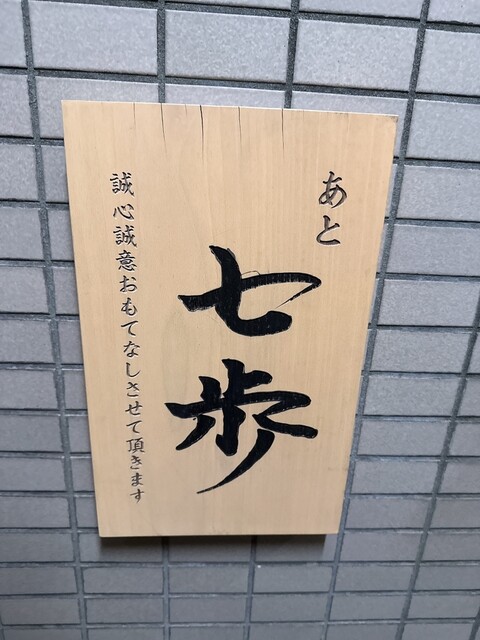 あと
七歩
誠心誠意おもてなしさせて頂きます